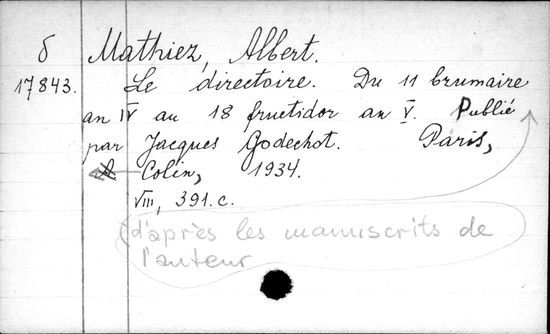 δ Mathiez, Albert.
17843. Le directoire. Du 11 brumaire
an IV au 18 fructidor an V. Publié
par Jacques Godechot. Paris,
A Colin, 1934.
VIII, 391.c.
(d'après les manuscrits de
l'auteur